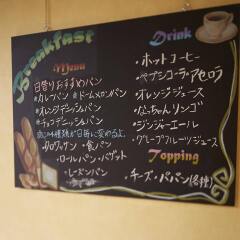 Breakfast
Menu
日替りおすすめパン
*カレーパン *ドームメロンパン
*オレンジデニッシュパン
*チョコデニッシュパン
・クロワッサン ・食パン
・ロールパン ・バゲット
・レーズンパン
Drink
・ホットコーヒー
・ペプシコーラ ・アセロラ
・オレンジジュース
・なっちゃんリンゴ
・ジンジャーエール
・グレープフルーツジュース
Topping
・チーズ ・パパン(各種)